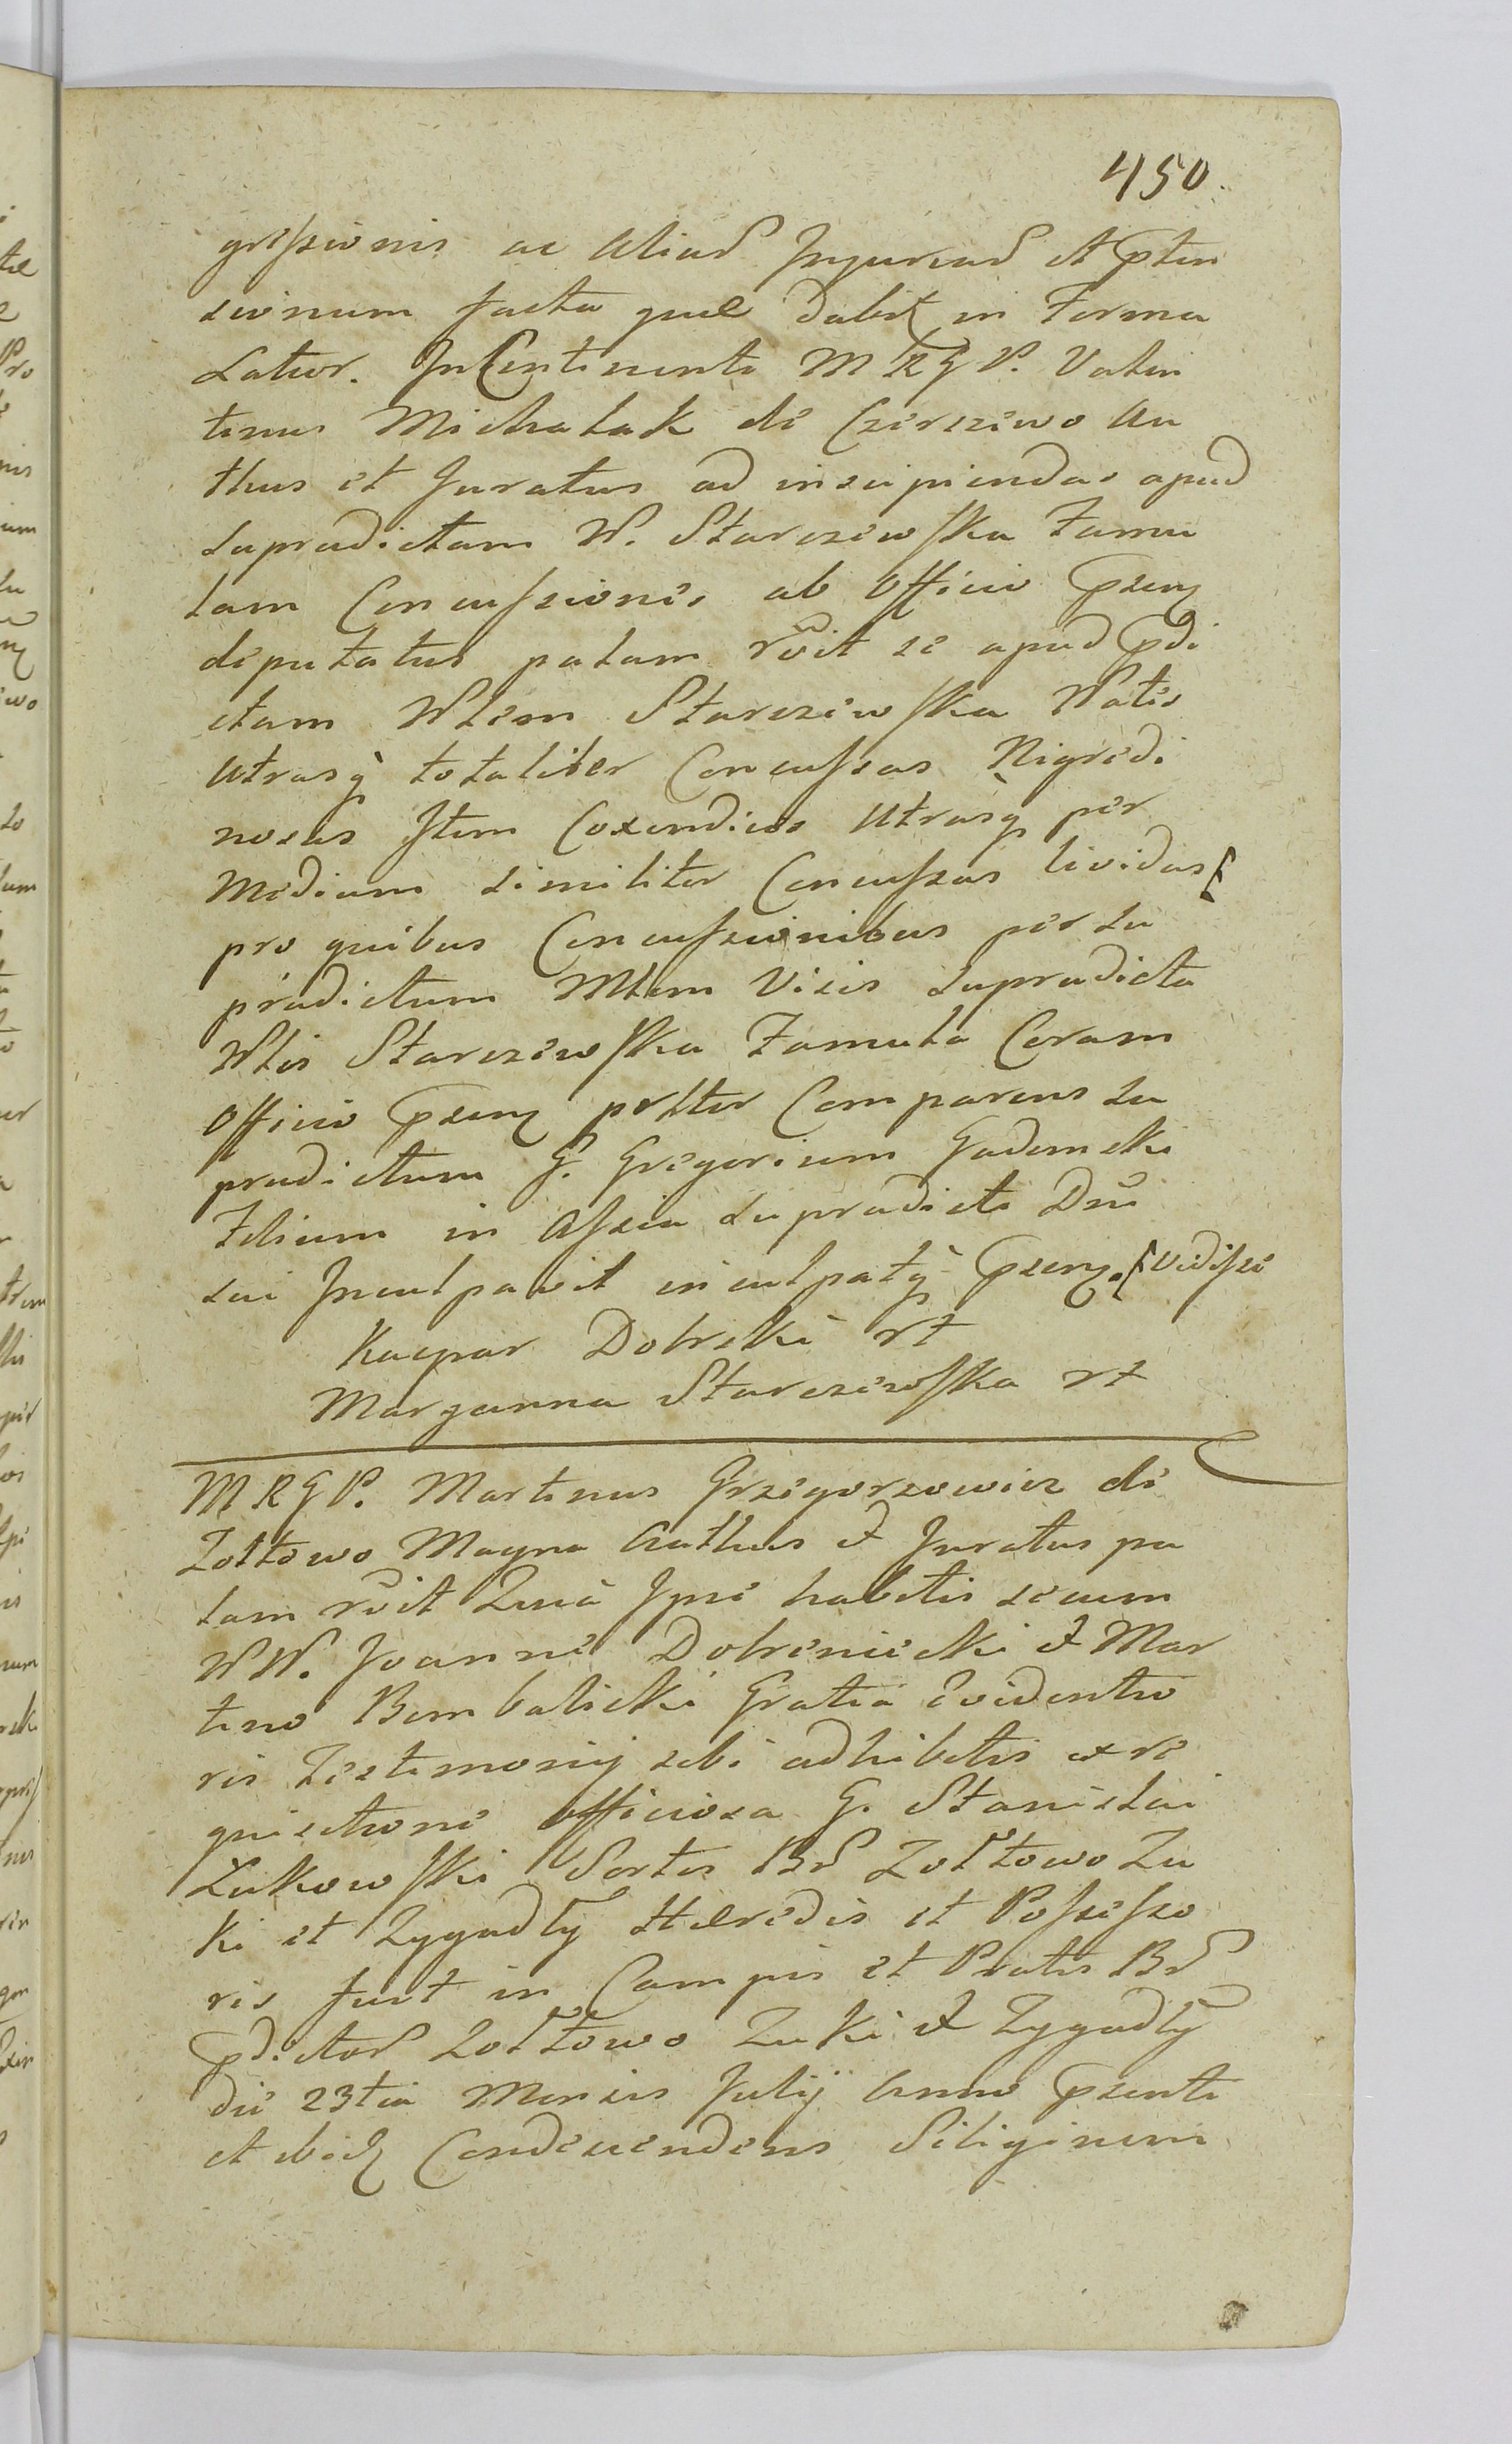 450.
gressionis ac aliar Injuriar et pten
sionum facta quae dabit in Forma
Latior. InContinenti MRGP. Valen
tinus Michalak de Czerzewo Au
thus et Juratus ad inscipiendas apud
supradictam W. Starczewska Famu
lam Concussiones ab Officio psenz
deputatus palam rvit se apud pdi
ctam Wlem Starczewska Natis
utrasq totaliter Concussas Nigredi
nosas Item Coxendices utrasq per
Medium similiter Concussas lividas
pro quibus Concussionibus per su
pradictum Mlem Visis supradicta
Wlis Starczewska Famula Coram
Officio psenz prltter Comparens su
pradictum G. Gregorium Gadomski
Filium in Assia supradicti Dni
sui Inculpavit inculpatq psenz. vidisse
Kacpar Dobrski rt
Maryanna Starczewska rt
MRGP. Martinus Grzegorzowicz de
Zołtowo Magna Authus et Juratus pa
lam rvit Quia Ipse habitis secum
WW. Joanne Dobrenicki et Mar
tino Bembalicki Gratia Evidentio
ris Testimonij sibi adhibitis ex re
quisitione officiosa G. Stanislai
Zukowski Sortis Br Zołtowo Zu
ki et Zygadły Haeredis et Possesso
ris fuit in Campis et Pratis Br
pdictor Zołtowo Zuki et Zygadły
die 23tia Mensis Julij Anno psenti
et ibid Condescendens Siliginem